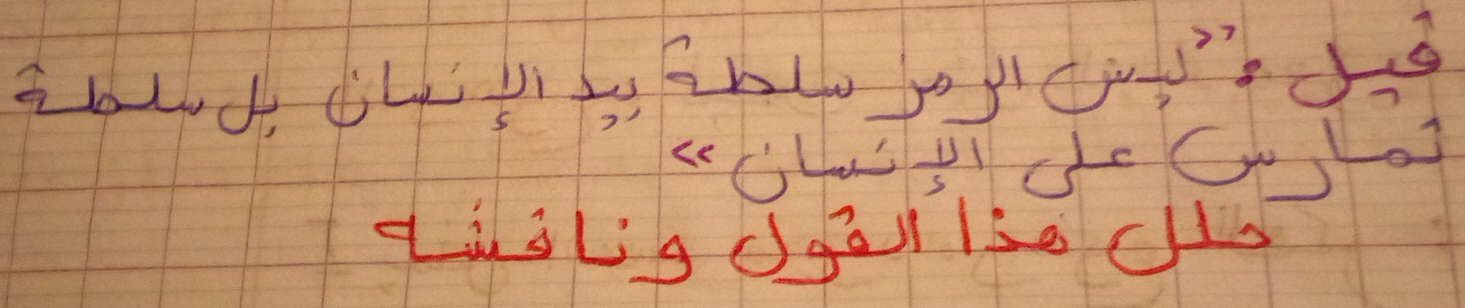 قيل : "ليس الرمز سلطة بيد الإنسان بل سلطة
تمارس على الإنسان »
حلل هذا القول وناقشه